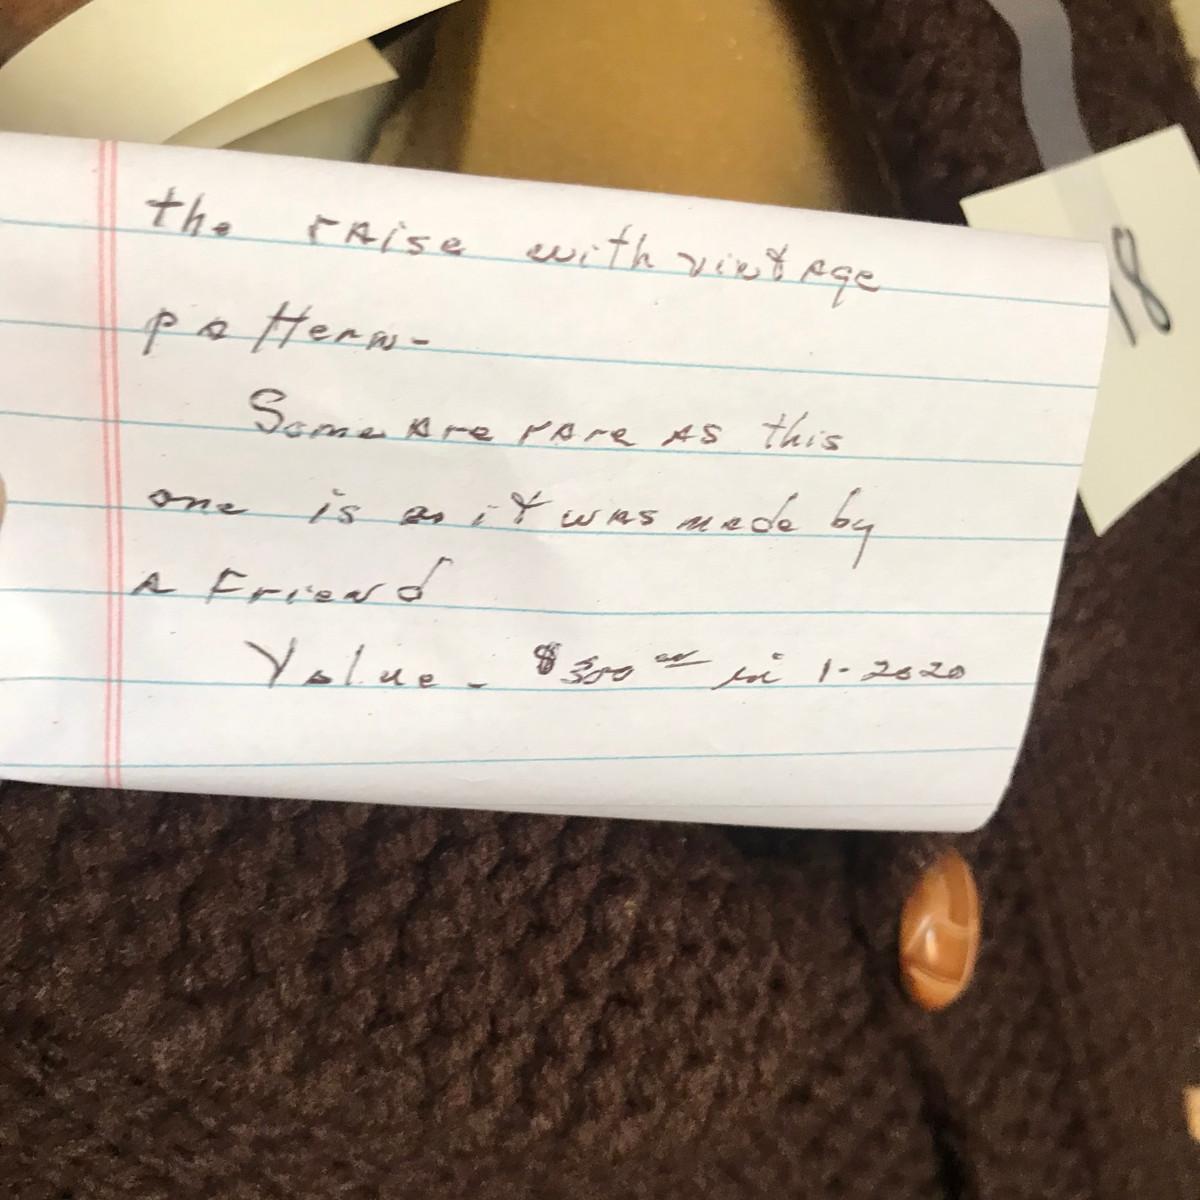 the rAise with vintAge
pattern-
Some Are rAre AS this
one is as it wAs made by
A Friend
Value - $300 00 in 1-2020
18